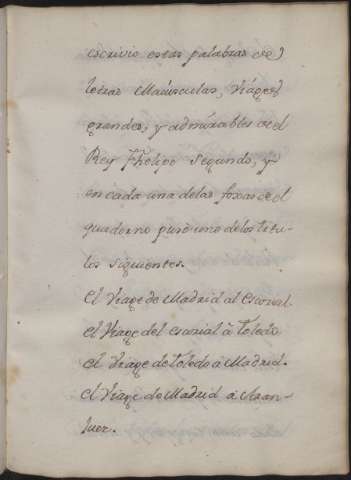 escrivio estas palabras de
letras Maiusculas, Viages
grandes, y admirables del
Rey Phelipe Segundo, y
en cada una de las foxas del
quaderno puso uno de los titu-
los siguientes.
el Viage de Madrid al Escorial.
el Viage del escorial à Toledo
el Viage de Toledo à Madrid.
el Viage de Madrid à Aran-
juez.